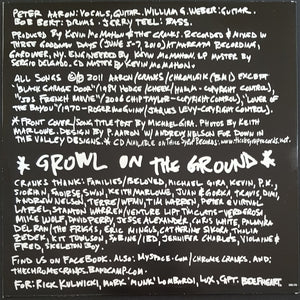 PETER AARON: VOCALS, GUITAR. WILLIAM G. WEBER: GUITAR.
BOB BERT: DRUMS. JERRY TEEL: BASS.
PRODUCED BY KEVIN McMAHON & THE CRANKS. RECORDED & MIXED IN
THREE GODDAMN DAYS (JUNE 5-7, 2010) AT MARCATA RECORDING,
GARDINER, NY. ENGINEERED BY KEVIN McMAHON. LP MASTER BY
SERGIO DELGADO. CD MASTER BY KEVIN McMAHON
ALL SONGS © 2011 AARON/CRANKS/CHROMILIK (BMI) EXCEPT
"BLACK GARAGE DOOR" (1984 HODGE/CHEEK/HAHM - COPYRIGHT CONTROL),
FRENCH MOVIE" (2006 CHIP TAYLOR - COPYRIGHT CONTROL), "LOVER OF
THE BAYOU" (1970 - ROGER McGUINN/JACQUES LEVY - COPYRIGHT CONTROL).
* FRONT COVER/SONG TITLE TEXT BY MICHAEL GIRA. PHOTOS BY KEITH
MARLOWE. DESIGN BY P. AARON W/ ANDREW NELSON FOR DOWN IN
THE VALLEY DESIGNS. * CD AVAILABLE ON
* GROWL ON THE GROUND *
CRANKS THANK: FAMILIES/BELOVED, MICHAEL GIRA, KEVIN, P.K.,
SIOBHAN, SWAN, KEITH MARLOWE, JUAN & GORKA, TRAVIS, DIMI,
ANDREW NELSON, TERRE/WFMU, TIM WARREN, PETER & VIRTUAL
LABEL, SHANTON WARREN/VENTURE LIFT, TMC CUTS - VERDEROSA,
MIKE WOLF, PREPERRY, JESSE ALEXANDER, CHRIS WHITE, PALOMBA
DELRAN/THE FRIGGS, ERIC MINGUS, CATHERINE SIKORA, THALIA
ZEDEK, KT TOWLSON, SABINE/BD, JENNIFER CHARLES, VIOLAINE &
FRED, SKELETON BOY.
FIND US ON FACEBOOK. ALSO: MYSPACE.COM/CHROME.CRANKS, AND:
THECHROMECRANKS.BANDCAMP.COM.
FOR: RICK KULWICKI, MARK "MUNK" LOMBARDI, LUX, CPT. BEEFHEART